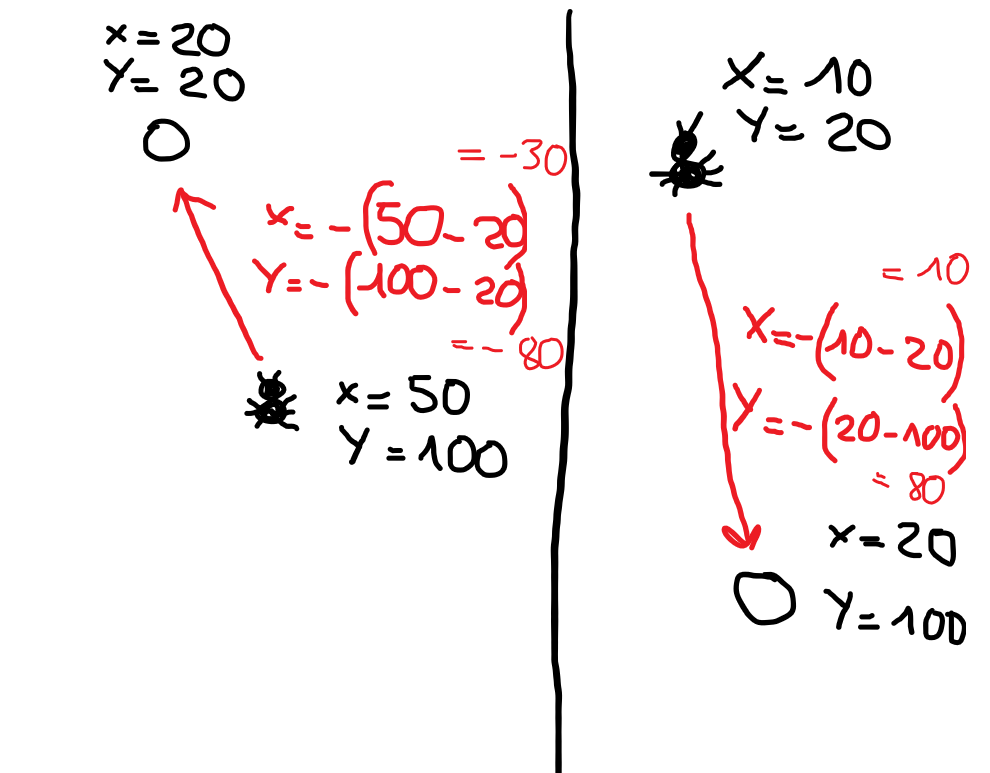 x = 20
Y = 20
= - 30
x = - (50 - 20)
Y = - (100 - 20)
= - 80
x = 50
Y = 100
X = 10
Y = 20
= 10
X = - (10 - 20)
Y = - (20 - 100)
= 80
x = 20
Y = 100